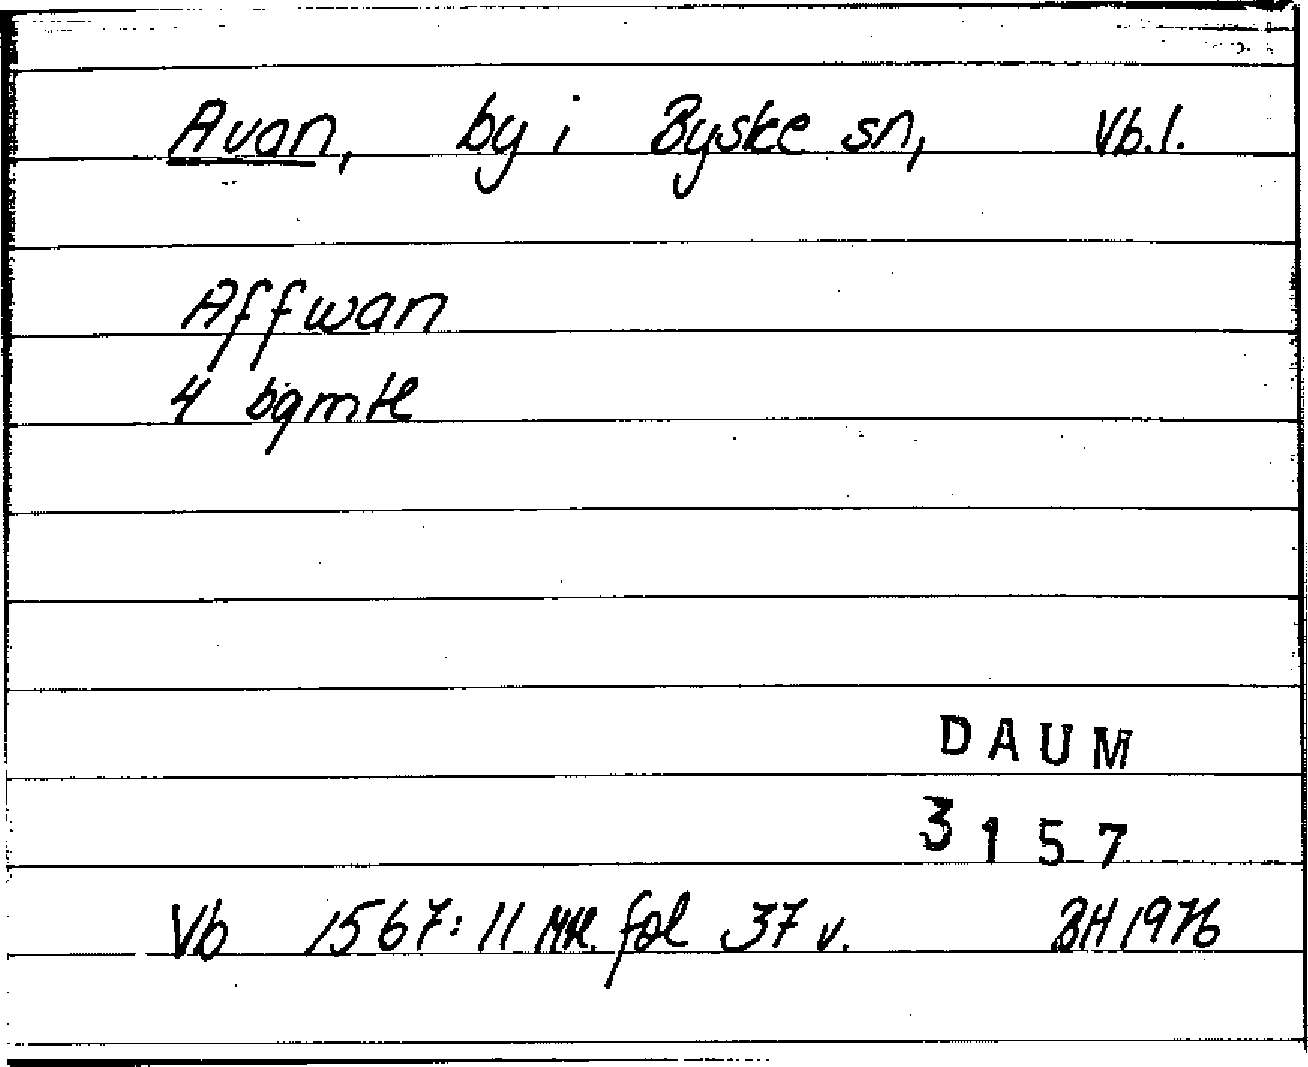 Avan, by i Byske sn, Vb.l.
Affwan
4 bgmtl
DAUM
3157
Vb 1567:11 Mtl. fol 37 v. BH 1976